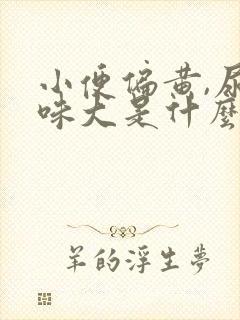 小便偏黄,尿
味大是什麼
羊的浮生夢